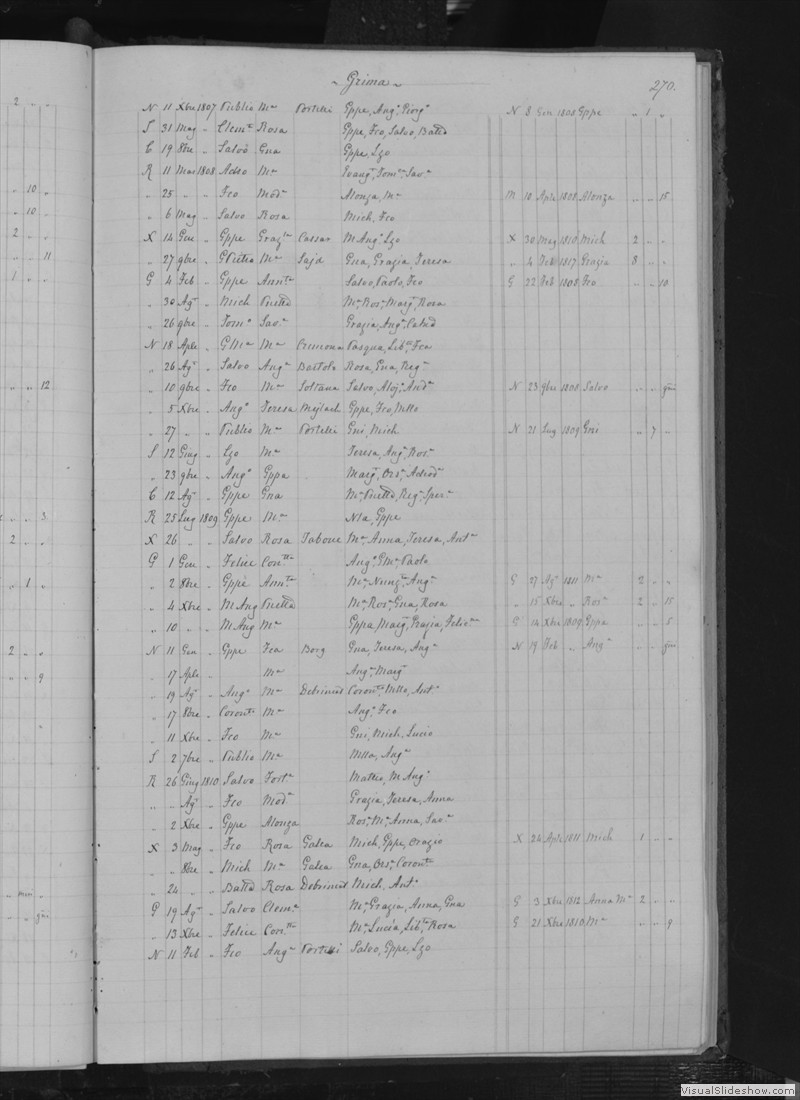 Grima
270.
N 11 Xbre 1807 Publio Mª Portelli Gppe, Angª, Giorgº N 8 Gen 1808 Gppe " 1 "
S 31 Mag " Clemte Rosa Gppe, Fco, Salvo, Battª
C 19 8bre " Salvo Gna Gppe, Lzo
R 11 Mar 1808 Adeo Mª Evangª, Tomª, Savª
" 25 " " Fco Modª Alonza, Mª M 10 Aple 1808 Alonza " " 15
" 6 Mag " Salvo Rosa Mich, Fco
X 14 Gen " Gppe Grazla Cassar M Angº, Lzo X 30 Mag 1810 Mich 2 " "
" 27 9bre " Mª Sajd Gna, Grazia, Teresa " 4 Feb 1817 Grazia 8 " "
G 4 Feb " Gppe Annta Salvo, Paolo, Fco G 22 Feb 1808 Fco " " 10
" 30 Agº " Mich Mª, Rosª, Margª, Rosa
" 26 9bre " Tomº Savª Grazia, Angª,
N 18 Aple " GMª Mª Cremona Pasqua, Libª, Fca
" 26 Agº " Salvo Angª Bartolo Rosa, Gna, Regª
" 10 9bre " Fco Mª Soltana Salvo, Aloj, Andª N 23 9bre 1808 Salvo " " gni
" 5 Xbre " Angº Teresa Mejlach Gppe, Fco, Mtteo
" 27 " " Publio Mª Portelli Gni, Mich N 21 Lug 1809 Gni " 7 "
S 12 Giug " Lzo Mª Teresa, Angª, Rosª
" 23 9bre " Angº Gppa Margª, Orsª,
C 12 Agº " Gppe Gna Mª, Regª, Sperª
R 25 Lug 1809 Gppe Mª Nla, Gppe
X 26 " " Salvo Rosa Tabone Mª, Anna, Teresa, Antª
G 1 Gen " Felice Contta Angº, GMª, Paolo
" 2 8bre " Gppe Annta Mª, Nunzª, Angª G 27 Agº 1811 Mª 2 " "
" 4 Xbre " M Ang Mª, Rosª, Gna, Rosa " 15 Xbre " Rosª 2 " 15
" 10 " " M Ang Mª Gppa, Margª, Grazia, Felicª G 14 Xbre 1809 Gppa " " 5
N 11 Gen " Gppe Fca Borg Gna, Teresa, Angª N 19 Feb " Angª " " gni
" 17 Aple Mª Angª, Margª
" 19 Agº " Angº Mª Debrincat Corontª, Mtteo, Antª
" 17 8bre " Coronto Mª Angª, Fco
" 11 Xbre " Fco Mª Gni, Mich, Lucio
S 2 7bre " Publio Mª Mtta, Angª
R 26 Giug 1810 Salvo Fortª Matteo, M Angº
" " Agº " Fco Modª Grazia, Teresa, Anna
" 2 Xbre " Gppe Alonza Rosª, Mª, Anna, Savª
X 3 Mag " Fco Rosa Galea Mich, Gppe, Orazio X 24 Aple 1811 Mich 1 " "
" " 8bre " Mich Mª Galea Gna, Orsª, Coronta
" 24 " " Battª Rosa Debrincat Mich, Antª
G 19 Agº " Salvo Clemª Mª, Grazia, Anna, Gna G 3 Xbre 1812 Anna Mª 2 " "
" 13 Xbre " Felice Contta Mª, Lucia, Libª, Rosa G 21 Xbre 1810 Mª " " 9
N 11 Feb " Fco Angª Portelli Salvo, Gppe, Lzo
VisualSlideshow.com